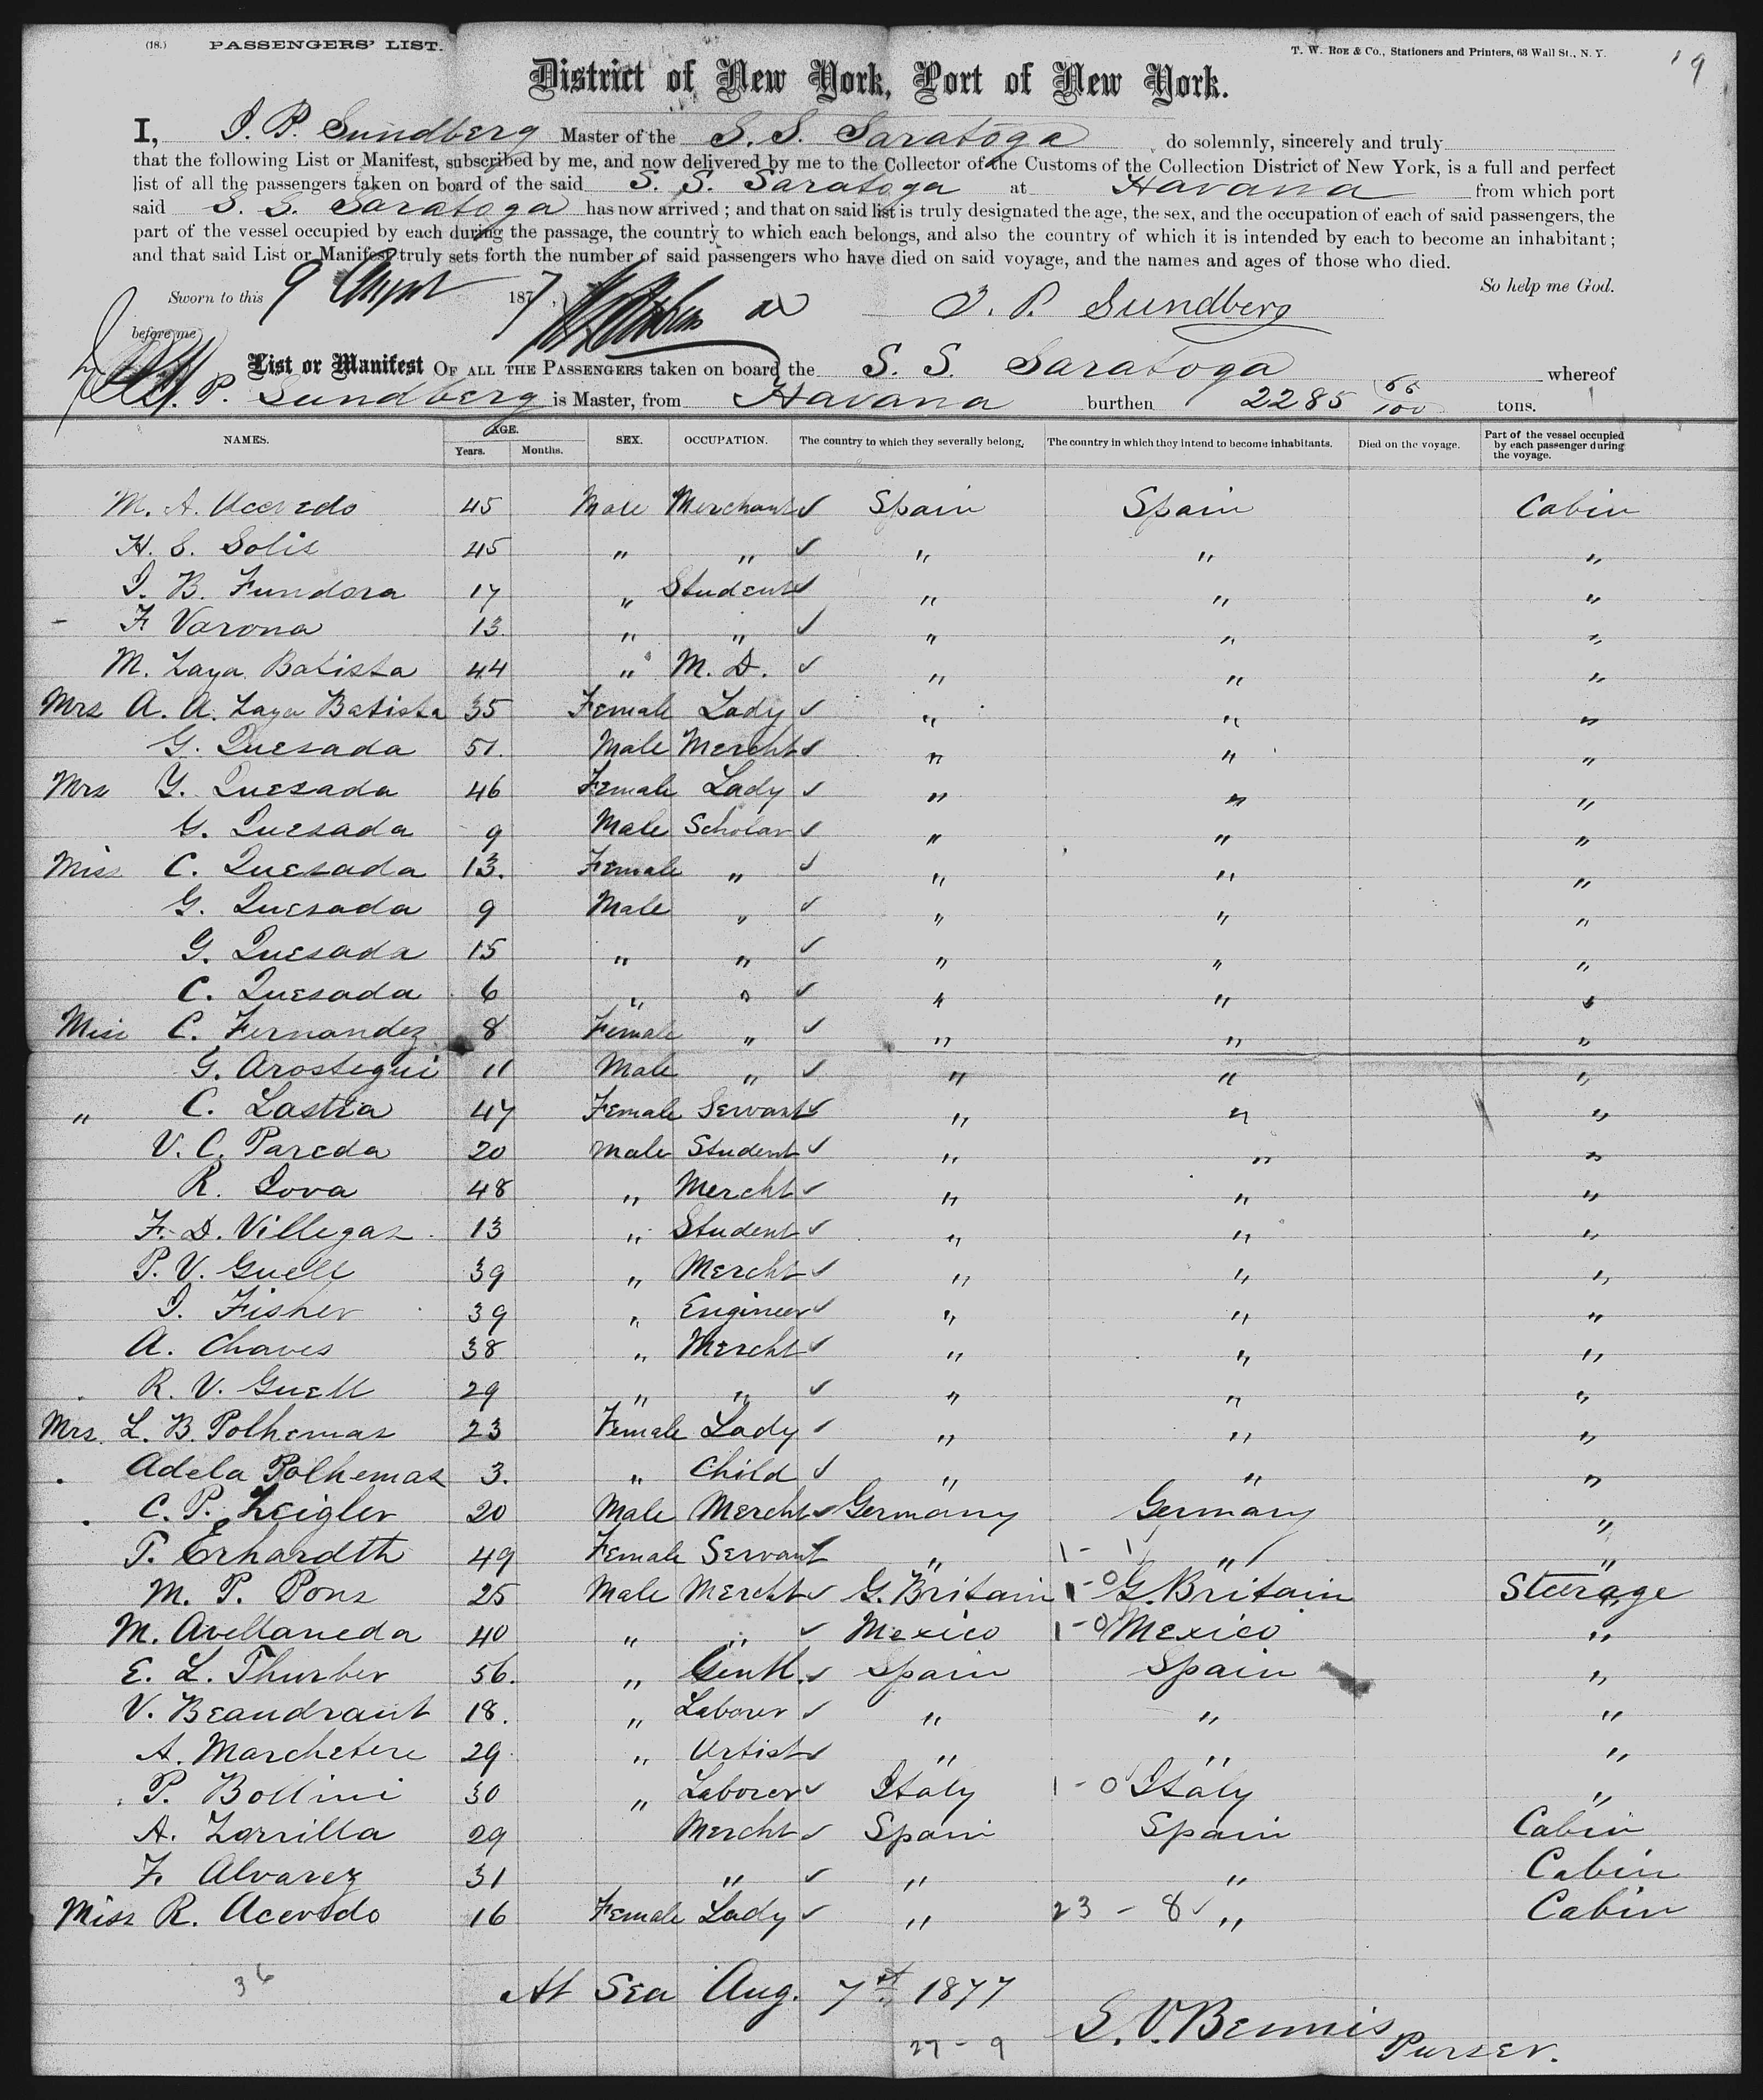 (18.) PASSENGERS' LIST.
T. W. ROE & CO., Stationers and Printers, 63 Wall St., N. Y.
19
District of New York, Port of New York.
I, J. P. Sundberg Master of the S. S. Saratoga do solemnly, sincerely and truly
that the following List or Manifest, subscribed by me, and now delivered by me to the Collector of the Customs of the Collection District of New York, is a full and perfect
list of all the passengers taken on board of the said S. S. Saratoga at Havana from which port
said S. S. Saratoga has now arrived; and that on said list is truly designated the age, the sex, and the occupation of each of said passengers, the
part of the vessel occupied by each during the passage, the country to which each belongs, and also the country of which it is intended by each to become an inhabitant;
and that said List or Manifest truly sets forth the number of said passengers who have died on said voyage, and the names and ages of those who died.
So help me God.
Sworn to this 9 August 1877, J. P. Sundberg
before me
List or Manifest OF ALL THE PASSENGERS taken on board the S. S. Saratoga whereof
J. P. Sundberg is Master, from Havana burthen 2285 66/100 tons.
NAMES. AGE. Years. Months. SEX. OCCUPATION. The country to which they severally belong. The country in which they intend to become inhabitants. Died on the voyage. Part of the vessel occupied by each passenger during the voyage.
M. A. Acevedo 45 Male Merchant ✓ Spain Spain Cabin
H. S. Solis 45 " " ✓ " " "
J. B. Fundora 17 " Student ✓ " " "
- F. Varona 13 " " ✓ " " "
M. Zaya Batista 44 " M. D. ✓ " " "
Mrs A. A. Zaya Batista 35 Female Lady ✓ " " "
G. Quesada 51. Male Mercht ✓ " " "
Mrs Y. Quesada 46 Female Lady ✓ " " "
G. Quesada 9 Male Scholar ✓ " " "
Miss C. Quesada 13. Female " ✓ " " "
G. Quesada 9 Male " ✓ " " "
G. Quesada 15 " " ✓ " " "
C. Quesada 6 " " ✓ " " "
Miss C. Fernandez 8 Female " ✓ " " "
G. Arostegui 11 Male " ✓ " " "
" C. Lastra 47 Female Servant ✓ " " "
V. C. Pareda 20 Male Student ✓ " " "
R. Sova 48 " Mercht ✓ " " "
F. D. Villegas 13 " Student ✓ " " "
P. V. Guell 39 " Mercht ✓ " " "
J. Fisher 39 " Engineer ✓ " " "
A. Chaves 38 " Mercht ✓ " " "
R. V. Guell 29 " " ✓ " " "
Mrs. L. B. Polhemas 23 Female Lady ✓ " " "
Adela Polhemas 3. " Child ✓ " " "
C. P. Zeigler 20 Male Mercht ✓ Germany Germany "
T. Erhardth 49 Female Servant ✓ " 1 - 1 " "
M. P. Pons 25 Male Mercht ✓ G. Britain 1 - 0 G. Britain Steerage
M. Avellaneda 40 " " ✓ Mexico 1 - 0 Mexico "
E. L. Thurber 56. " Gentl. ✓ Spain Spain "
V. Beaudrant 18. " Laborer ✓ " " "
A. Marchetere 29 " Artist ✓ " " "
P. Bollini 30 " Laborer ✓ Italy 1 - 0 Italy "
A. Zorrilla 29 Mercht ✓ Spain Spain Cabin
F. Alvarez 31 " ✓ " " Cabin
Miss R. Acevedo 16 Female Lady ✓ " 23 - 8 ✓ " Cabin
36
At Sea Aug. 7st 1877
27 - 9
S. V. Bennis
Purser.